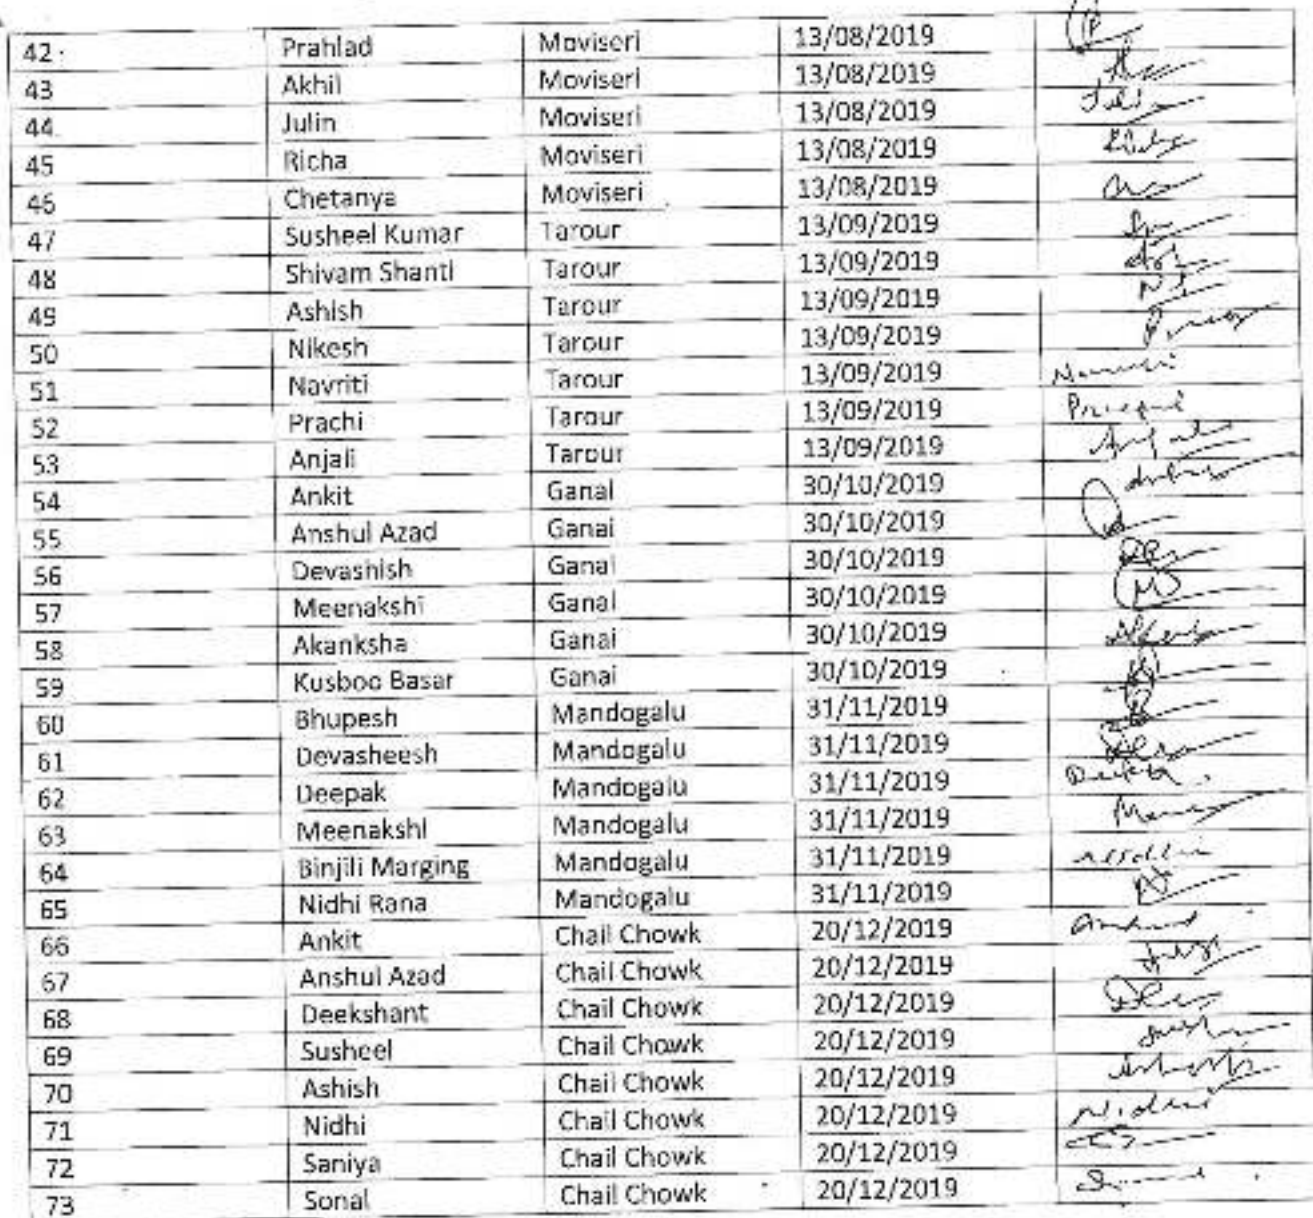 42 Prahlad Moviseri 13/08/2019
43 Akhil Moviseri 13/08/2019
44 Julin Moviseri 13/08/2019
45 Richa Moviseri 13/08/2019
46 Chetanya Moviseri 13/08/2019
47 Susheel Kumar Tarour 13/09/2019
48 Shivam Shanti Tarour 13/09/2019
49 Ashish Tarour 13/09/2019
50 Nikesh Tarour 13/09/2019
51 Navriti Tarour 13/09/2019
52 Prachi Tarour 13/09/2019
53 Anjali Tarour 13/09/2019 Anjali
54 Ankit Ganai 30/10/2019
55 Anshul Azad Ganai 30/10/2019
56 Devashish Ganai 30/10/2019
57 Meenakshi Ganai 30/10/2019
58 Akanksha Ganai 30/10/2019
59 Kusboo Basar Ganai 30/10/2019
60 Bhupesh Mandogalu 31/11/2019
61 Devasheesh Mandogalu 31/11/2019
62 Deepak Mandogalu 31/11/2019
63 Meenakshi Mandogalu 31/11/2019
64 Binjili Marging Mandogalu 31/11/2019
65 Nidhi Rana Mandogalu 31/11/2019
66 Ankit Chail Chowk 20/12/2019
67 Anshul Azad Chail Chowk 20/12/2019
68 Deekshant Chail Chowk 20/12/2019
69 Susheel Chail Chowk 20/12/2019
70 Ashish Chail Chowk 20/12/2019
71 Nidhi Chail Chowk 20/12/2019 Nidhi
72 Saniya Chail Chowk 20/12/2019
73 Sonal Chail Chowk 20/12/2019